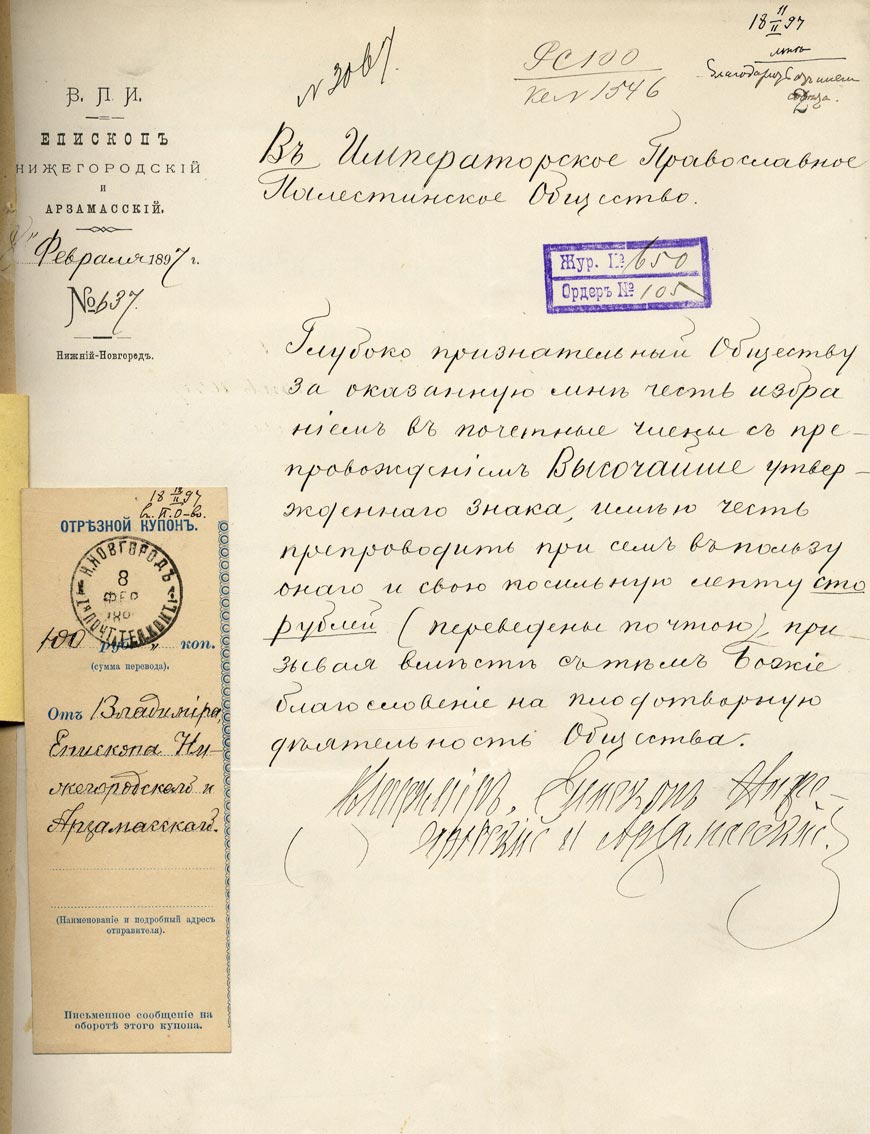 18 11/II 97
Благодар
N 3067.
РС 100
Кв N 1546
В. П. И.
ЕПИСКОПЪ
НИЖЕГОРОДСКІЙ
И
АРЗАМАССКІЙ.
Февраля 1897 г.
№ 637.
Нижній-Новгородъ.
Въ Императорское Православное
Палестинское Общество.
Жур. № 650
Ордеръ № 105
Глубоко признательный Обществу
за оказанную мнѣ честь избра
ніемъ въ почетные члены съ пре-
провожденіемъ Высочайше утвер-
жденнаго знака, имѣю честь
препроводить при семъ въ пользу
онаго и свою посильную лепту сто
рублей (переведены почтою), при
зывая вмѣстѣ съ тѣмъ Божіе
благословеніе на плодотворную
дѣятельность Общества.
Владиміръ, Епископъ Ниже-
городскій и Арзамасскій.
18 13/II 97
ОТРѢЗНОЙ КУПОНЪ.
Н. НОВГОРОДЪ
8
ФЕВ
189
100 руб. „ коп.
(сумма перевода).
Отъ Владиміра,
Епископа Ни-
жегородскаго и
Арзамасскаго.
(Наименованіе и подробный адресъ
отправителя).
Письменное сообщеніе на
оборотѣ этого купона.